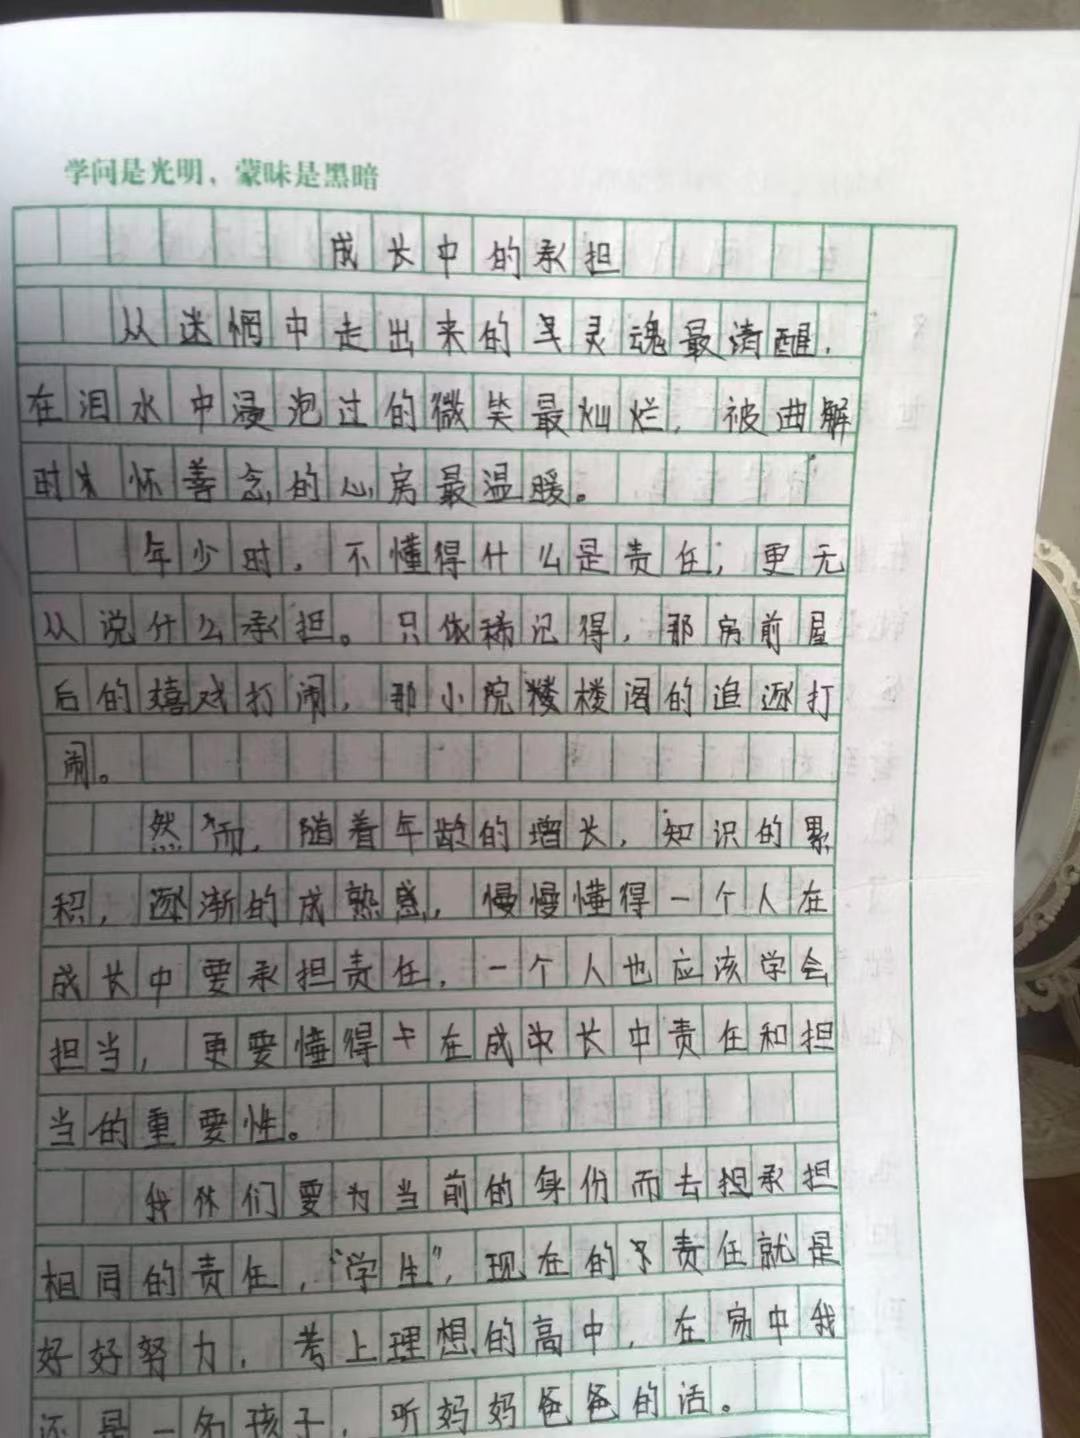 学问是光明，蒙昧是黑暗
成长中的承担
从迷惘中走出来的灵魂最清醒，
在泪水中浸泡过的微笑最灿烂，被曲解
时怀善念的心房最温暖。
年少时，不懂得什么是责任；更无
从说什么承担。只依稀记得，那房前屋
后的嬉戏打闹，那小院楼阁的追逐打
闹。
然而，随着年龄的增长，知识的累
积，逐渐的成熟感，慢慢懂得一个人在
成长中要承担责任，一个人也应该学会
担当，更要懂得在成长中责任和担
当的重要性。
我们要为当前的身份而去承担
相同的责任，“学生”，现在的责任就是
好好努力，考上理想的高中，在家中我
还是一名孩子，听妈妈爸爸的话。